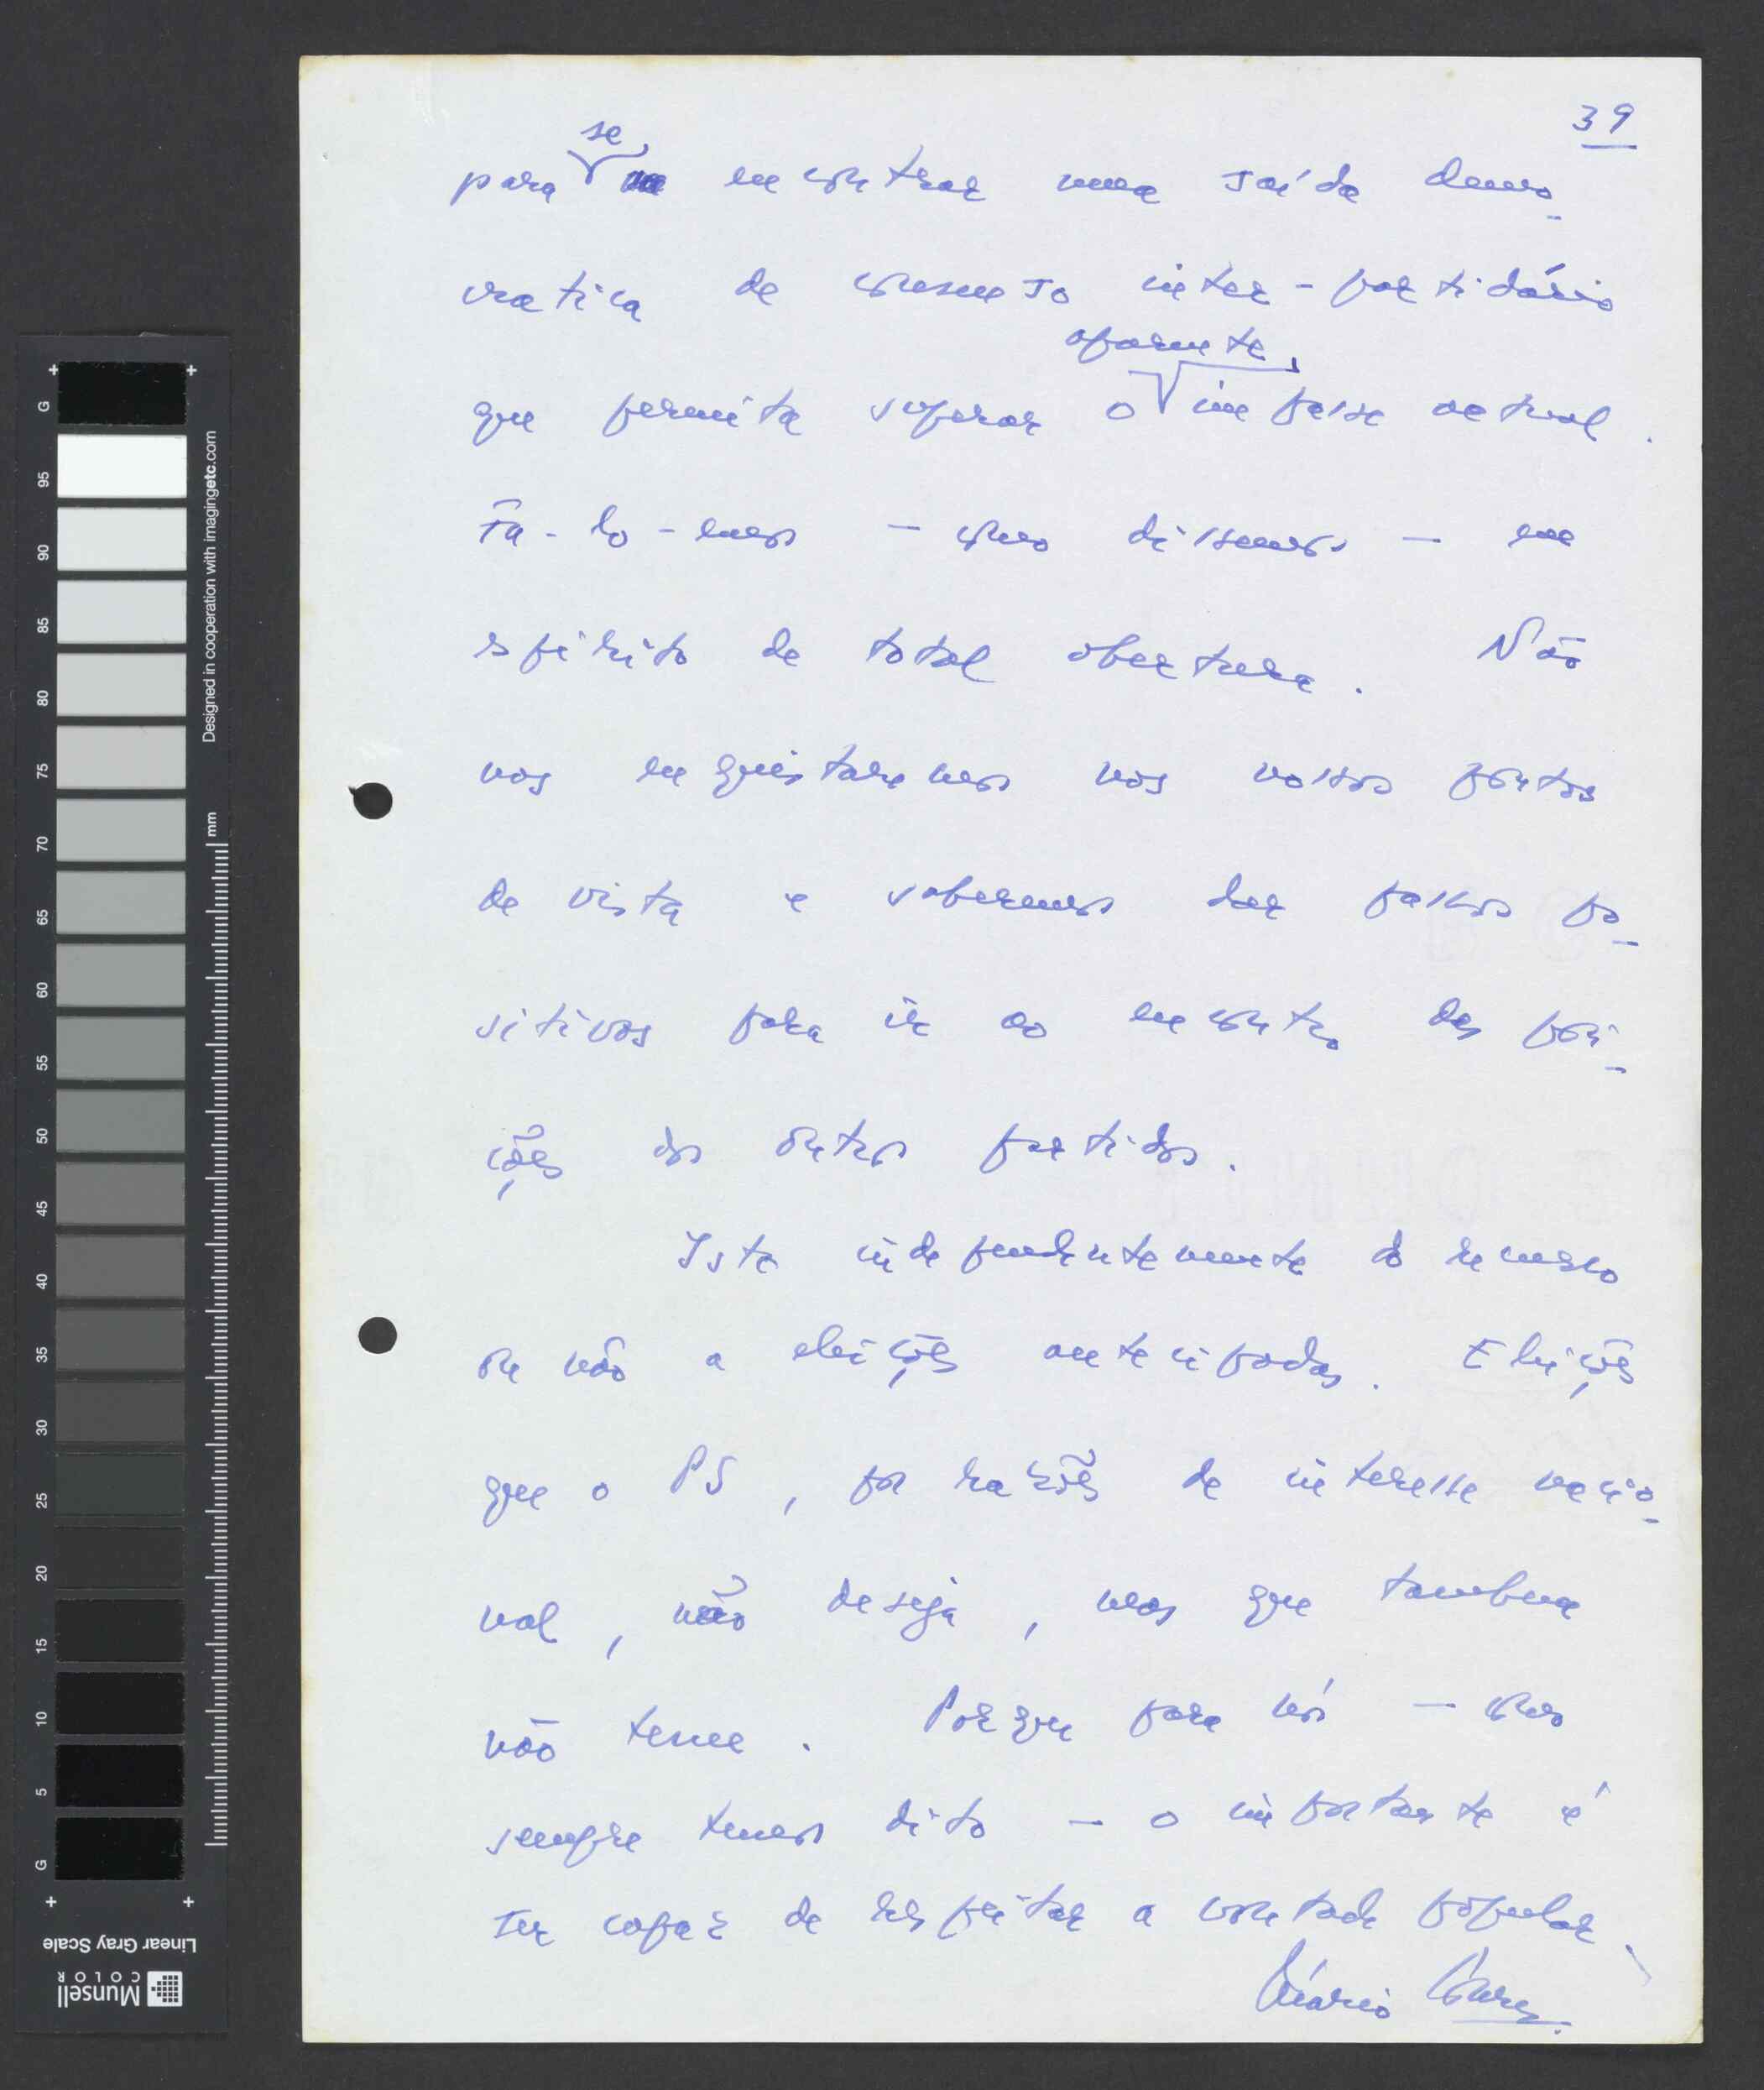 39
se
para encontrar uma saída demo-
cratica de consenso inter-partidário
aparente
que permita superar o impasse actual.
Fá-lo-emos – como dissemos – em
espírito de total abertura. Não
nos enquistaremos nos nossos pontos
de vista e saberemos dar passos po-
sitivos para ir ao encontro das posi-
ções dos outros partidos.
Isto independentemente do recurso
ou não a eleições antecipadas. Eleições
que o PS, por razões de interesse nacio-
nal, não deseja, mas que tambem
não teme. Porque para nós – como
sempre temos dito – o importante é
ser capaz de respeitar a vontade popular.
Mário Soares
G
95
90
85
80
75
70
65
60
55
50
45
40
35
30
25
20
15
10
5
G
Designed in cooperation with imagingetc.com
mm
Linear Gray Scale
Munsell
COLOR